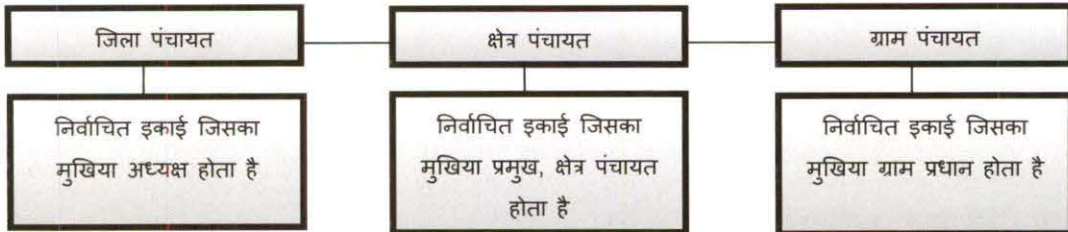 जिला पंचायत
क्षेत्र पंचायत
ग्राम पंचायत
निर्वाचित इकाई जिसका
मुखिया अध्यक्ष होता है
निर्वाचित इकाई जिसका
मुखिया प्रमुख, क्षेत्र पंचायत
होता है
निर्वाचित इकाई जिसका
मुखिया ग्राम प्रधान होता है